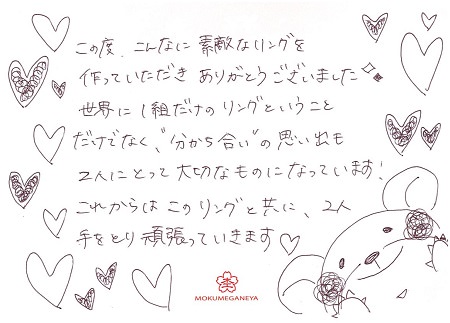 この度、こんなに素敵なリングを
作っていただきありがとうございました
世界に1組だけのリングということ
だけでなく、"分かち合い"の思い出も
2人にとって大切なものになっています!
これからはこのリングと共に、2人
手をとり頑張っていきます♡
杢
MOKUMEGANEYA